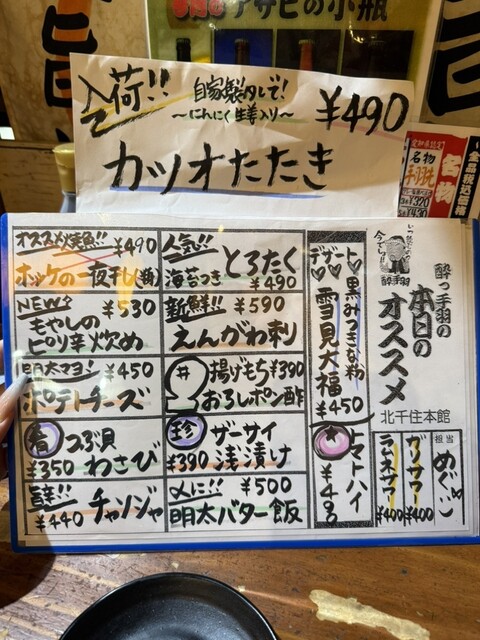 アサヒの小瓶
入荷!!
自家製タレで!
～にんにく生姜入り～
¥490
カツオたたき
全品税込価格
名物
名物
手羽先
¥320
オススメ焼魚!!
¥490
ホッケの一夜干し(揚)
人気!!
海苔つき
とろたく
¥490
NEW
¥530
もやしの
ピリ辛炒め
新鮮!!
¥590
えんがわ刺
明太マヨ!
¥450
ポテトチーズ
揚げもち¥390
おろしポン酢
つぶ貝
¥350
わさび
珍
ザーサイ
¥390
浅漬け
¥440
チャンジャ
〆に!!
¥500
明太バター飯
デザート
黒みつきな粉
雪見大福
¥450
トマトハイ
酔っ手羽
酔っ手羽の
本日の
オススメ
北千住本館
担当
めぐ
ガリサワー
¥400
ラムネサワー
¥400